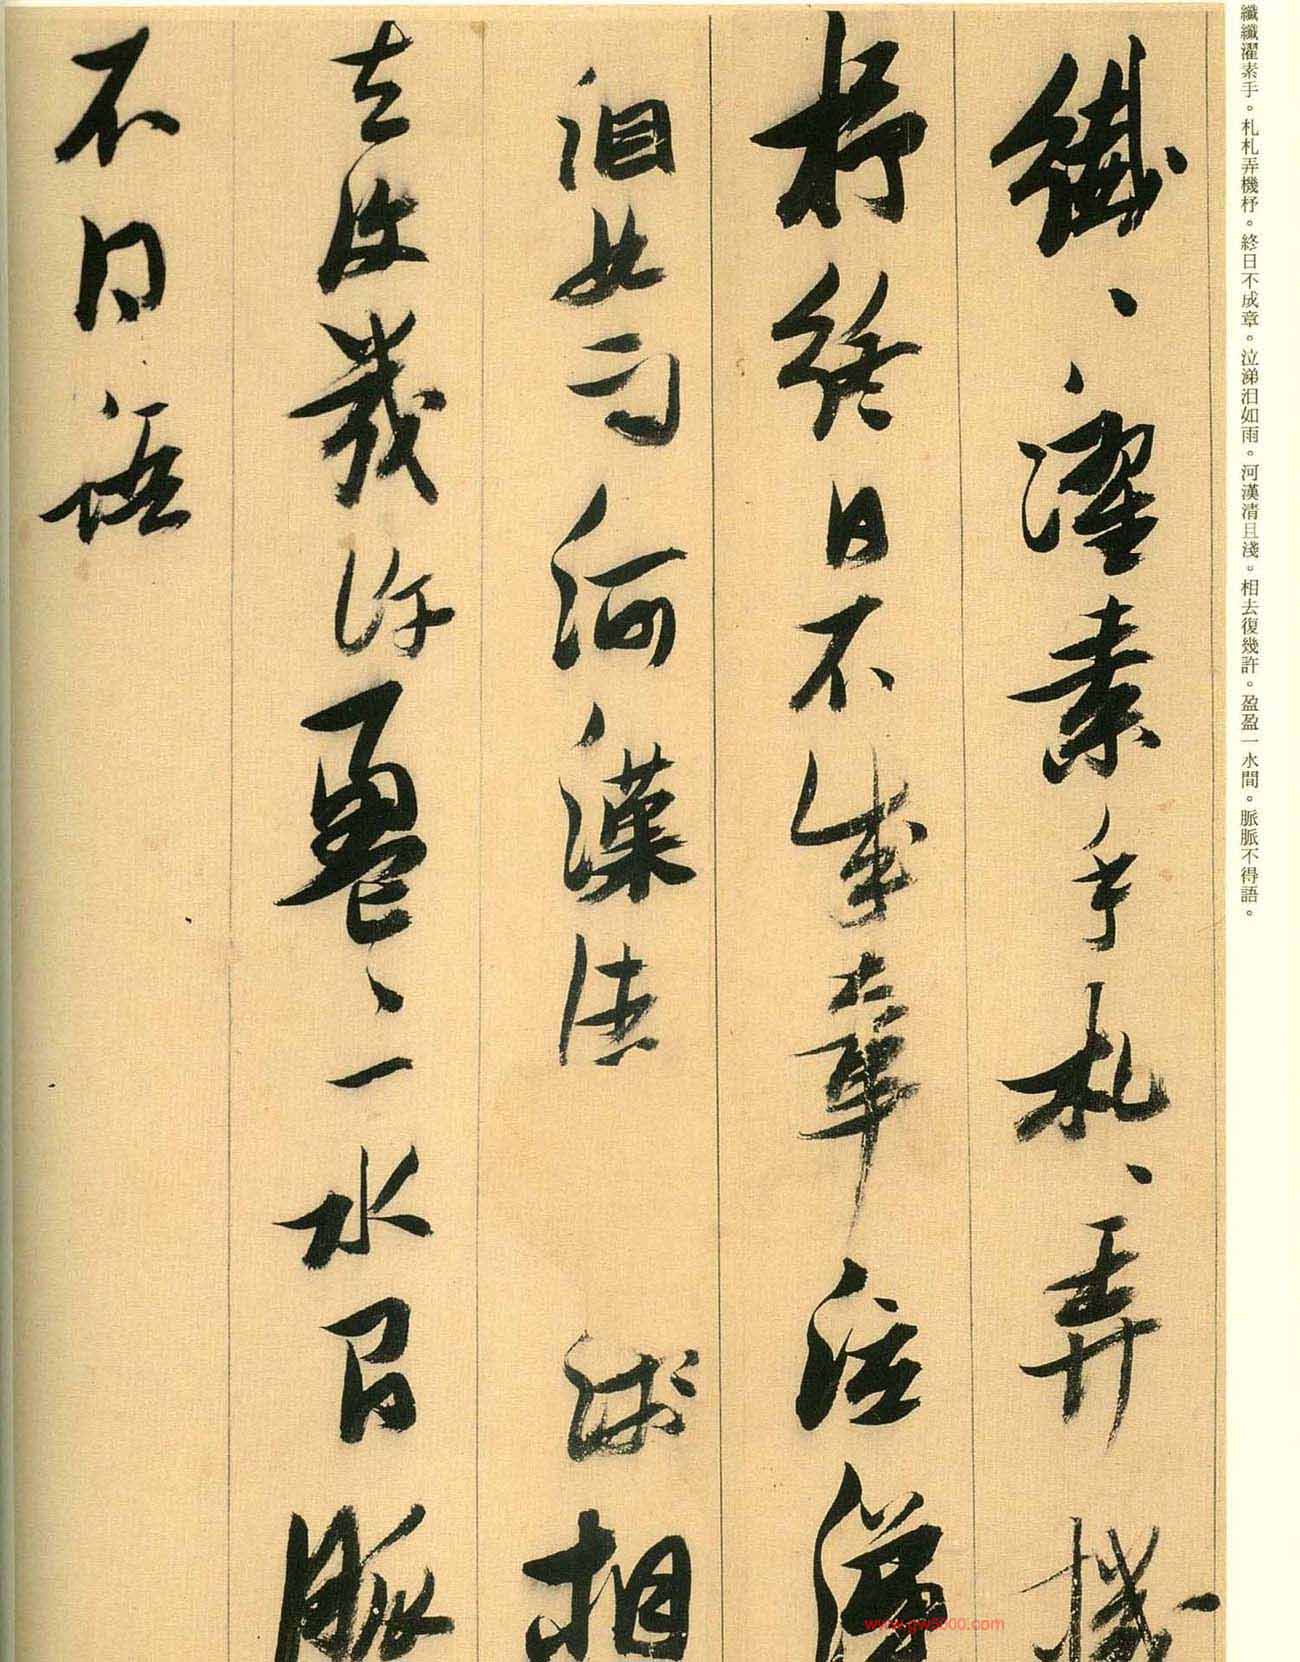 纖纖濯素手。札札弄機杼。終日不成章。泣涕泪如雨。河漢清且淺。相去復幾許。盈盈一水間。脈脈不得語。
纖、濯素手札、弄機
杼終日不成章泣涕
泪如雨河漢清淺相
去復幾許盈、一水間脈
不得語